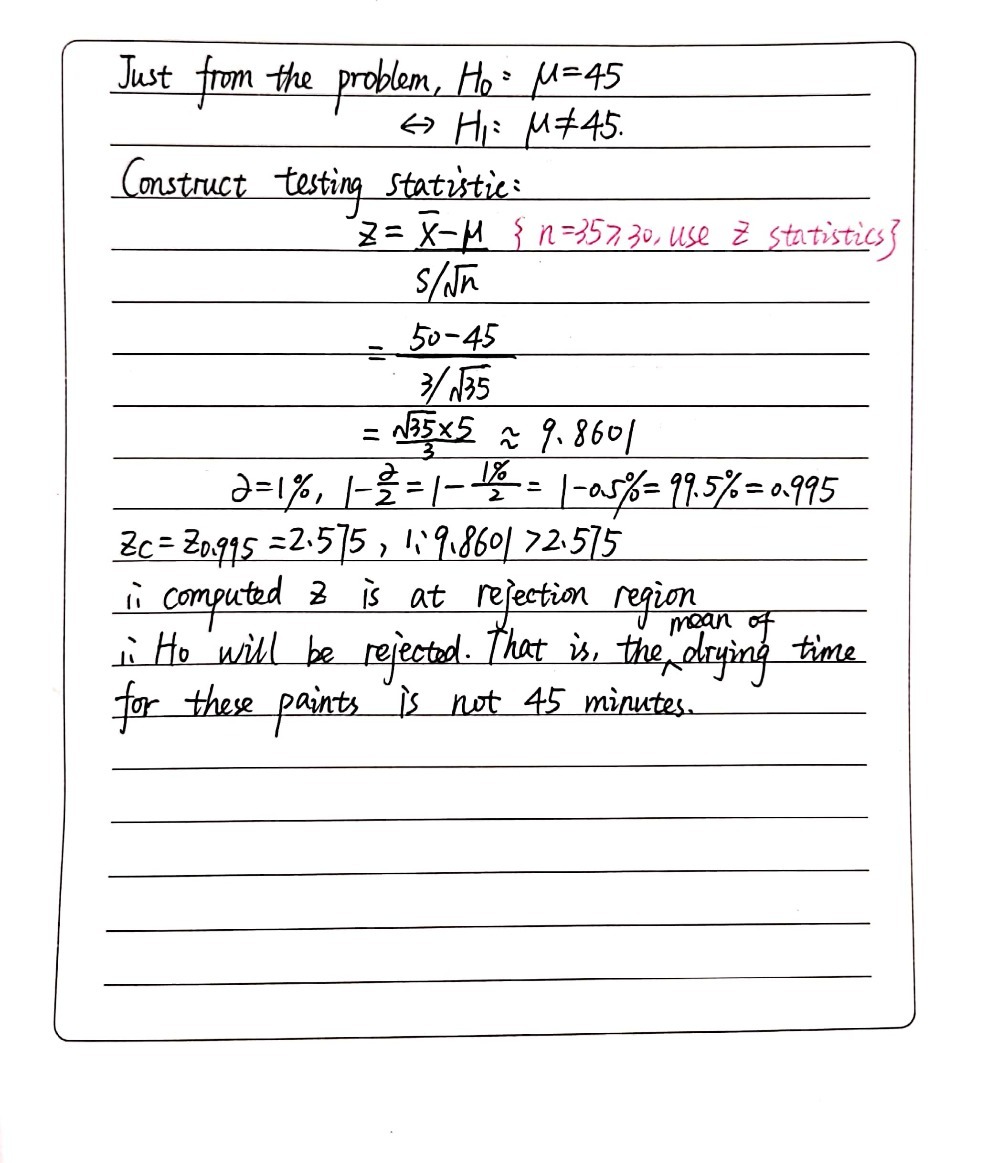 Just from the problem, H₀: μ=45
⇔ H₁: μ≠45.
Construct testing statistic:
z = (x̄-μ)/(s/√n) { n=35≥30, use z statistics}
= (50-45)/(3/√35)
= (√35×5)/3 ≈ 9.8601
∂=1%, 1-∂/2=1-1%/2= 1-0.5%=99.5%=0.995
Zc=Z0.995=2.575, ∵9.8601>2.575
∴ computed z is at rejection region
∴ H₀ will be rejected. That is, the mean of drying time
for these paints is not 45 minutes.